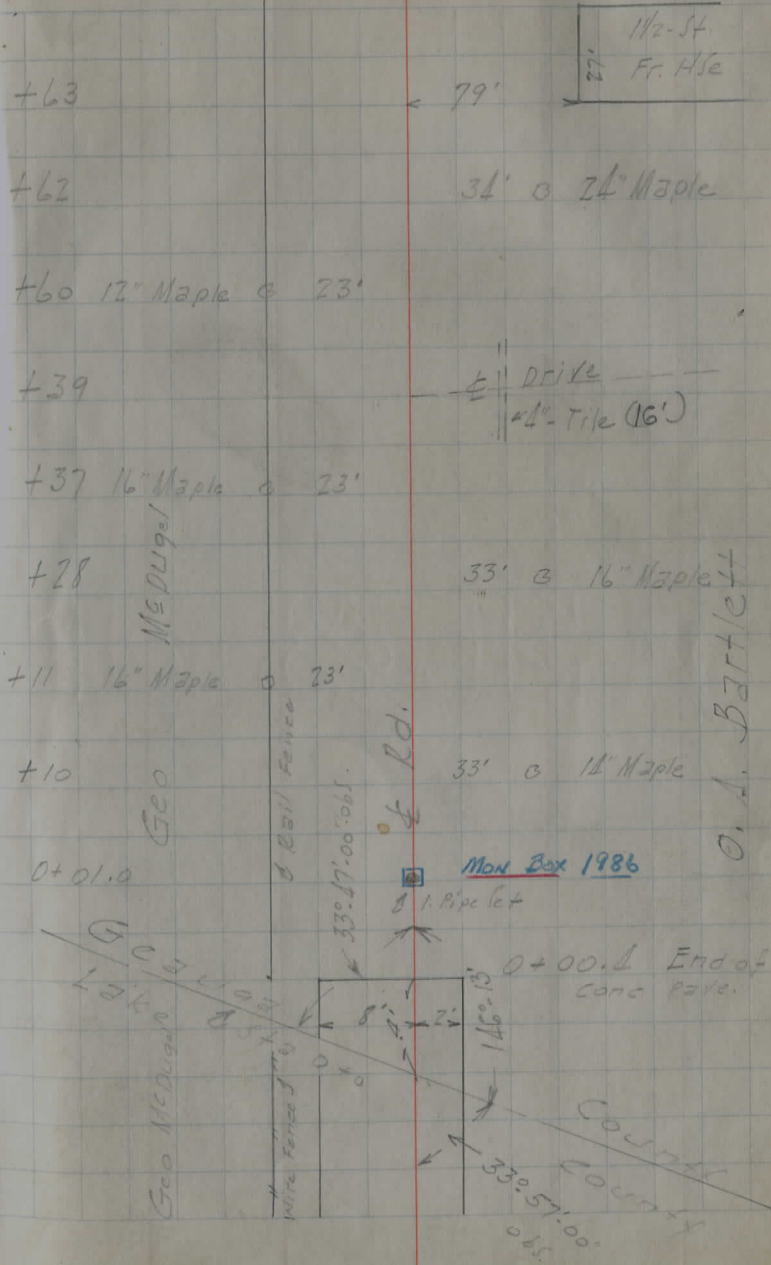 1 1/2-St.
Fr. Hse
27'
+63 79'
+62 34' 24" Maple
+60 12" Maple 23'
+39 ℄ Drive
4"-Tile (16')
+37 16" Maple 23'
+28 33' 16" Maple
+11 16" Maple 23'
+10 33' 14" Maple
Geo McDugel
Rail Fence
33°-47'-00"-obs.
℄ Rd.
O. A. Bartlett
0+01.0 Mon Box 1986
1. Pipe Set
0+00.4 End of
conc pave.
8' 4' 2'
146°-13'
Geo McDugel
Wire Fence
33°-51'-00"
County
County